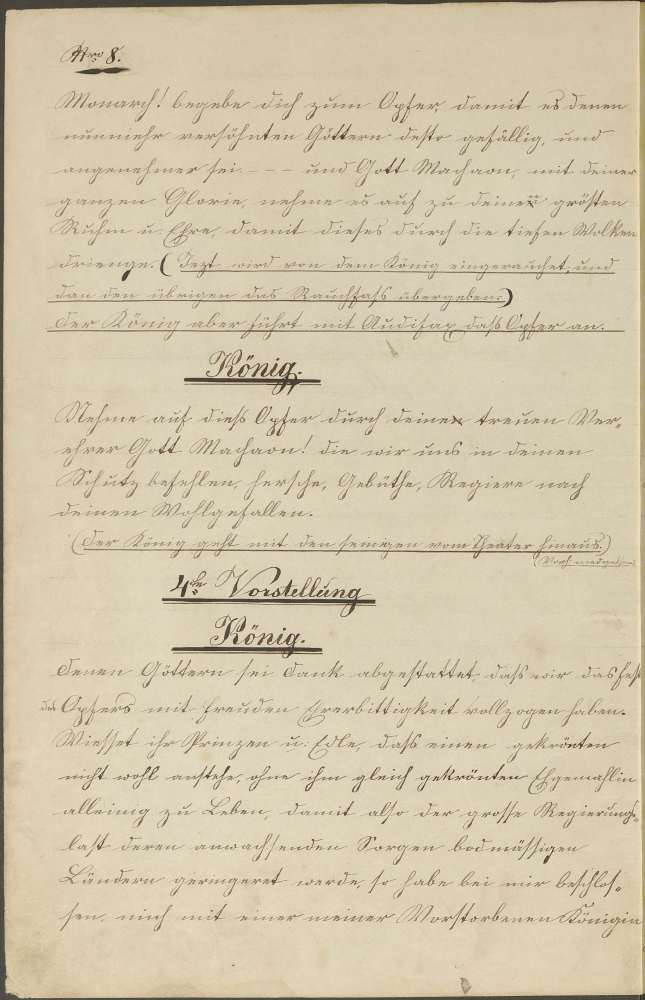 Nro 8.
Monarch! begebe dich zum Opfer, damit es denen
nunmehr versöhnten Göttern desto gefällig, und
angenehmer sei - - - und Gott Machaon, mit deiner
ganzen Glorie, nehme es auf zu deinen grösten
Ruhm u: Ehre, damit dieses durch die tiefen Wolken
drienge. (Jezt wird von dem König eingerauchet, und
dan den übrigen das Rauchfaß übergeben:)
Der König aber führt mit Audifax daß Opfer an.
König.
Nehme auf dieß Opfer durch deinen treuen Ver„
ehrer Gott Machaon! die wir uns in deinen
Schutz befehlen, hersche, Gebüthe, Regiere nach
deinen Wohlgefallen.
(Der König geht mit den seinegen vom Theater hinaus.)
4te Vorstellung
König.
Denen Göttern sei Dank abgestattet, daß wir das Fest
des Opfers mit Freuden Ehrerbittigkeit vollzogen haben.
Wiesset ihr Prinzen u: Edle, daß einen gekrönten
nicht wohl anstehe, ohne ihm gleich gekrönten Ehgemahlin
alleinig zu Leben, damit also der grosse Regierungs„
last deren anwachsenden Sorgen bodmässigen
Ländern geringeret werde, so habe bei mir beschlos„
sen, mich mit einer meiner Vorstorbenen Königin